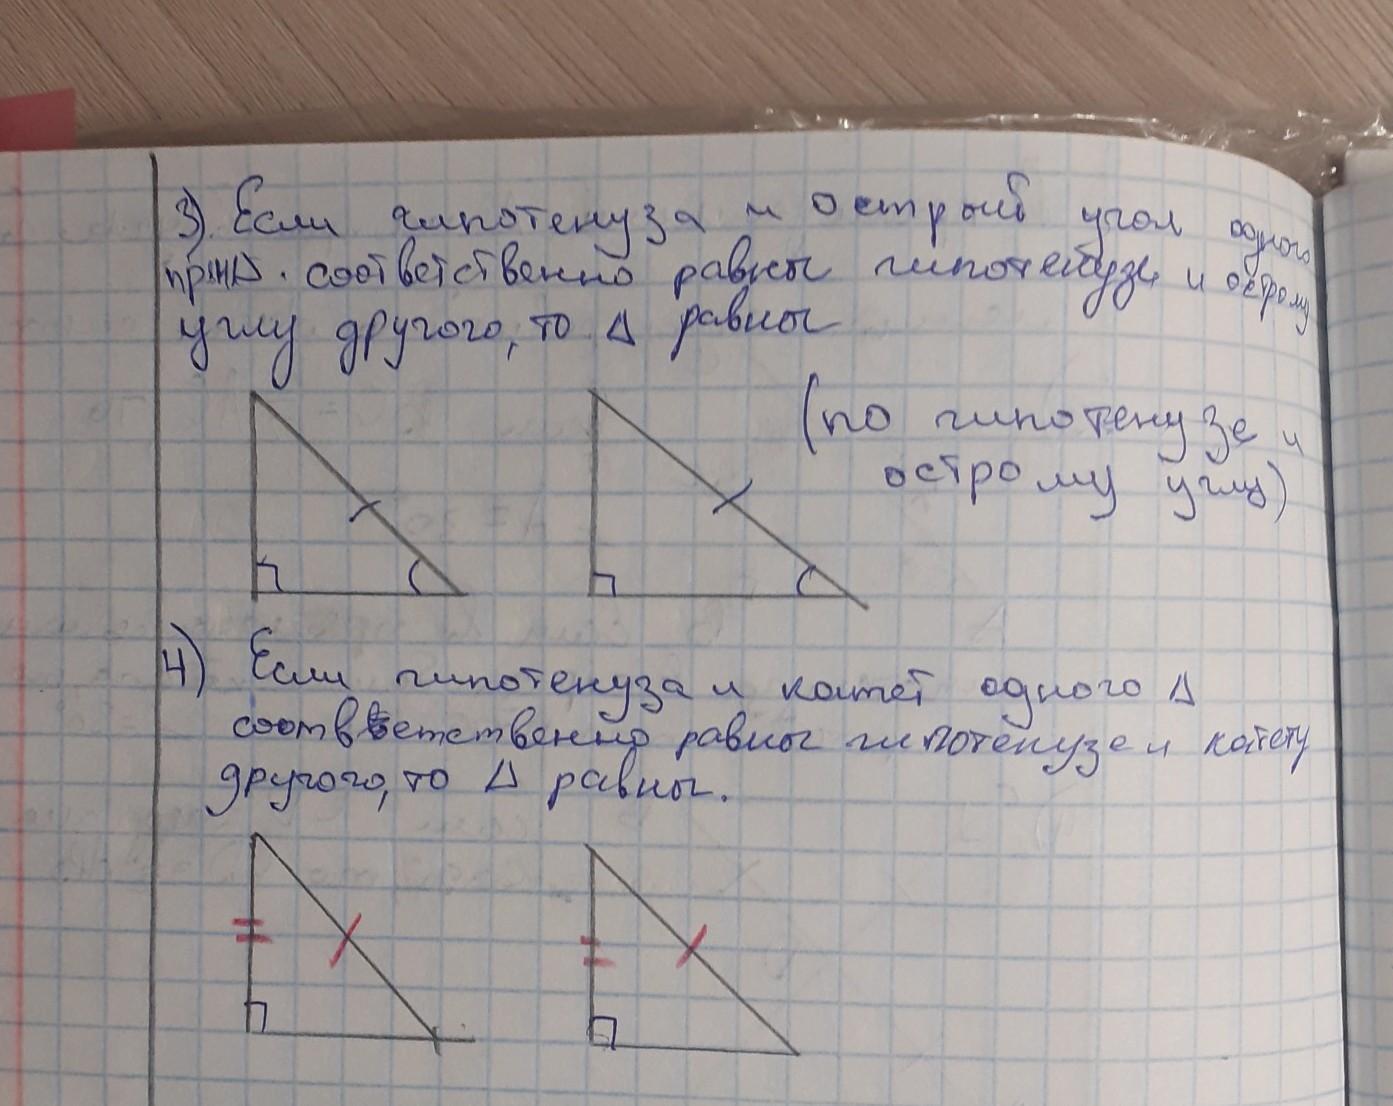 3) Если гипотенуза и острый угол одного
прям Δ. соответственно равны гипотенузе и острому
углу другого, то Δ равны
(по гипотенузе и
острому углу)
4) Если гипотенуза и катет одного Δ
соответственно равны гипотенузе и катету
другого, то Δ равны.